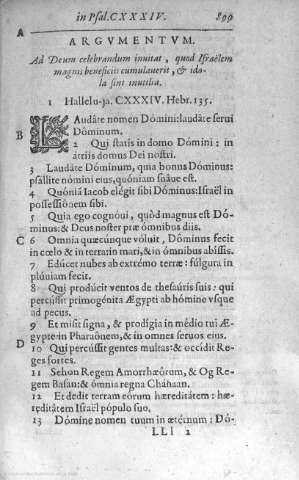 in Psal. CXXXIV. 899
A
ARGVMENTVM.
Ad Deum celebrandum inuitat, quod Israëlem
magnis beneficiis cumulauerit, & ido-
la sint inutilia.
1 Hallelu-ja. CXXXIV. Hebr. 135.
LAudáte nomen Dómini: laudáte serui
B Dóminum.
2 Qui statis in domo Dómini: in
átriis domus Dei nostri.
3 Laudáte Dóminum, quia bonus Dóminus:
psállite nómini eius, quóniam suáue est.
4 Quóniã Iacob elégit sibi Dóminus: Israël in
possessiónem sibi.
5 Quia ego cognóui, quòd magnus est Dó-
minus: & Deus noster præ ómnibus diis.
C 6 Omnia quæcúnque vóluit, Dóminus fecit
in cœlo & in terra: in mari, & in ómnibus abíssis.
7 Edúcet nubes ab extrémo terræ: fúlgura in
plúuiam fecit.
8 Qui prodúcit ventos de thesáuris suis: qui
percússit primogénita Ægypti ab hómine vsque
ad pecus.
9 Et misit signa, & prodígia in médio tui Æ-
gypte: in Pharaónem, & in omnes seruos eius.
D
10 Qui percússit gentes multas: & occídit Re-
ges fortes.
11 Sehon Regem Amorrhæórum, & Og Re-
gem Basan: & ómnia regna Cháhaan.
12 Et dedit terram eórum hæreditátem: hæ-
reditátem Israël pópulo suo.
13 Dómine nomen tuum in ætérnum: Dó-
LLl 2